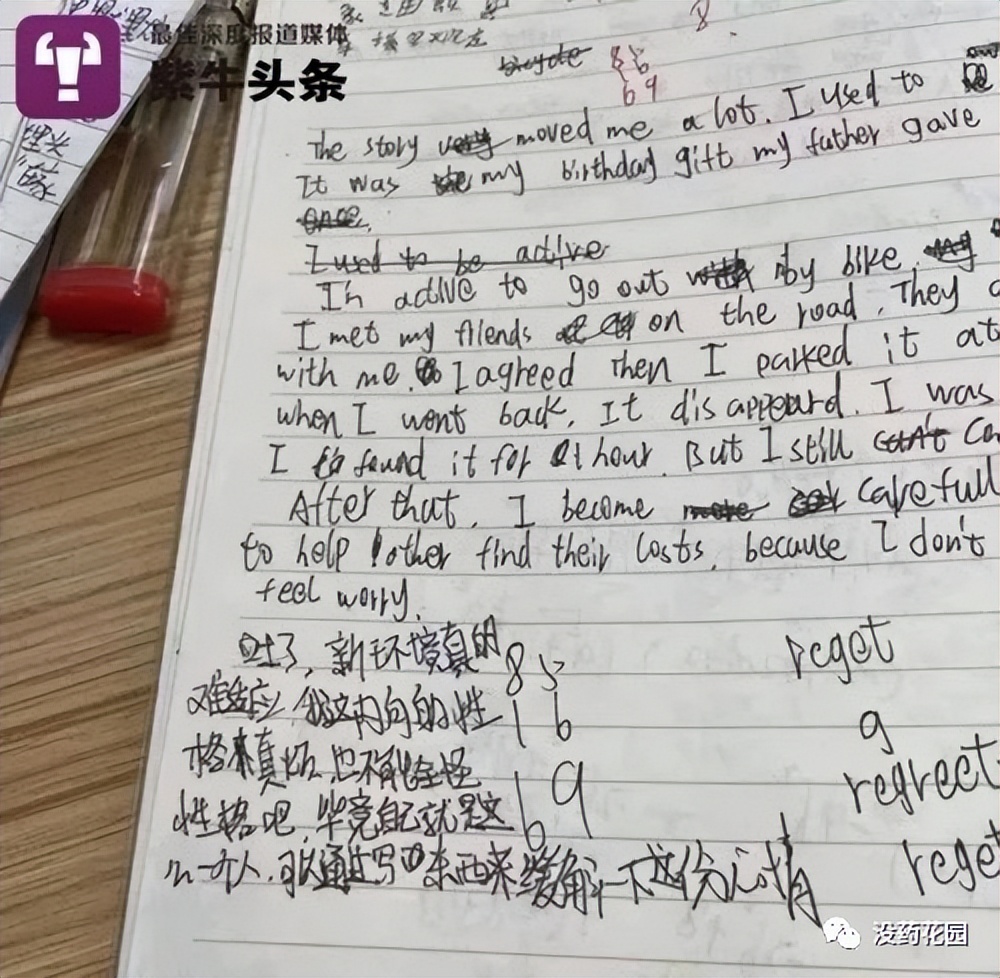 最佳深度报道媒体
紫牛头条
8
bicycle 86
69
The story moved me a lot. I used to
It was my birthday gift my father gave
once.
I used to be active
In active to go out by bike.
I met my fliends on the road. They
with me. I agreed Then I parked it at
when I went back, It disappeard. I was
I found it for 1 hour. But I still can't
After that, I become more carefull
to help other find their Costs, because I don't
feel worry.
吐了，新环境真的 85 reget
难适应，我这内向的性 16 g
格真 也不能全怪 19 regrect
性格吧，毕竟自己就是这 6
么一个人，可以通过写 东西来缓解一下这份心情 reget
没药花园